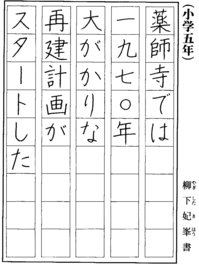 (小学五年)
柳下妃峯書
やぎ した き ほう
薬師寺では
一九七〇年
大がかりな
再建計画が
スタートした